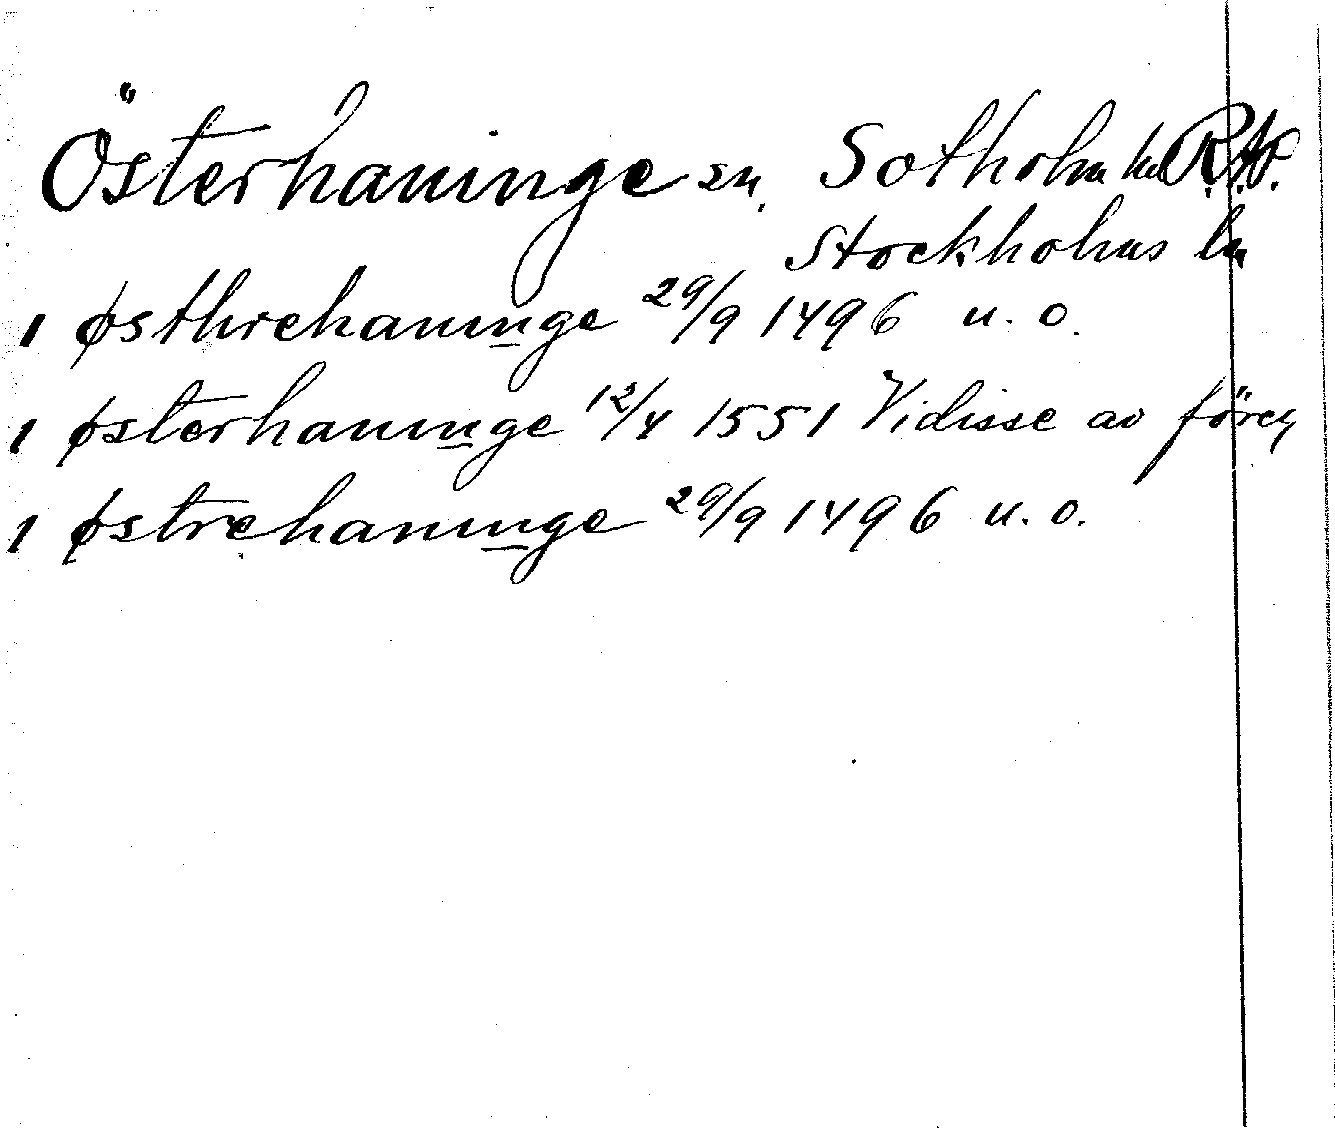 Österhaninge sn. Sotholm hd R.A.P.
Stockholms ln
1 østhrehaninge 29/9 1496 u. o.
1 østerhaninge 12/4 1551 Vidisse av föreg
1 østrehaninge 29/9 1496 u. o.